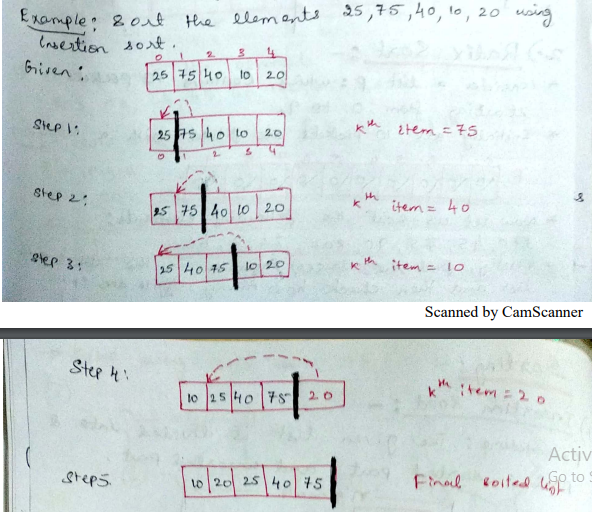 Example: Sort the elements 25, 75, 40, 10, 20 using
Insertion sort.
0 1 2 3 4
Given: 25 75 40 10 20
Step 1: 25 75 40 10 20 kth item = 75
0 1 2 3 4
Step 2: 25 75 40 10 20 kth item = 40
s
Step 3: 25 40 75 10 20 kth item = 10
Scanned by CamScanner
Step 4: 10 25 40 75 20 kth item = 20
Activ
Step5. 10 20 25 40 75 Final sorted list
Go to S